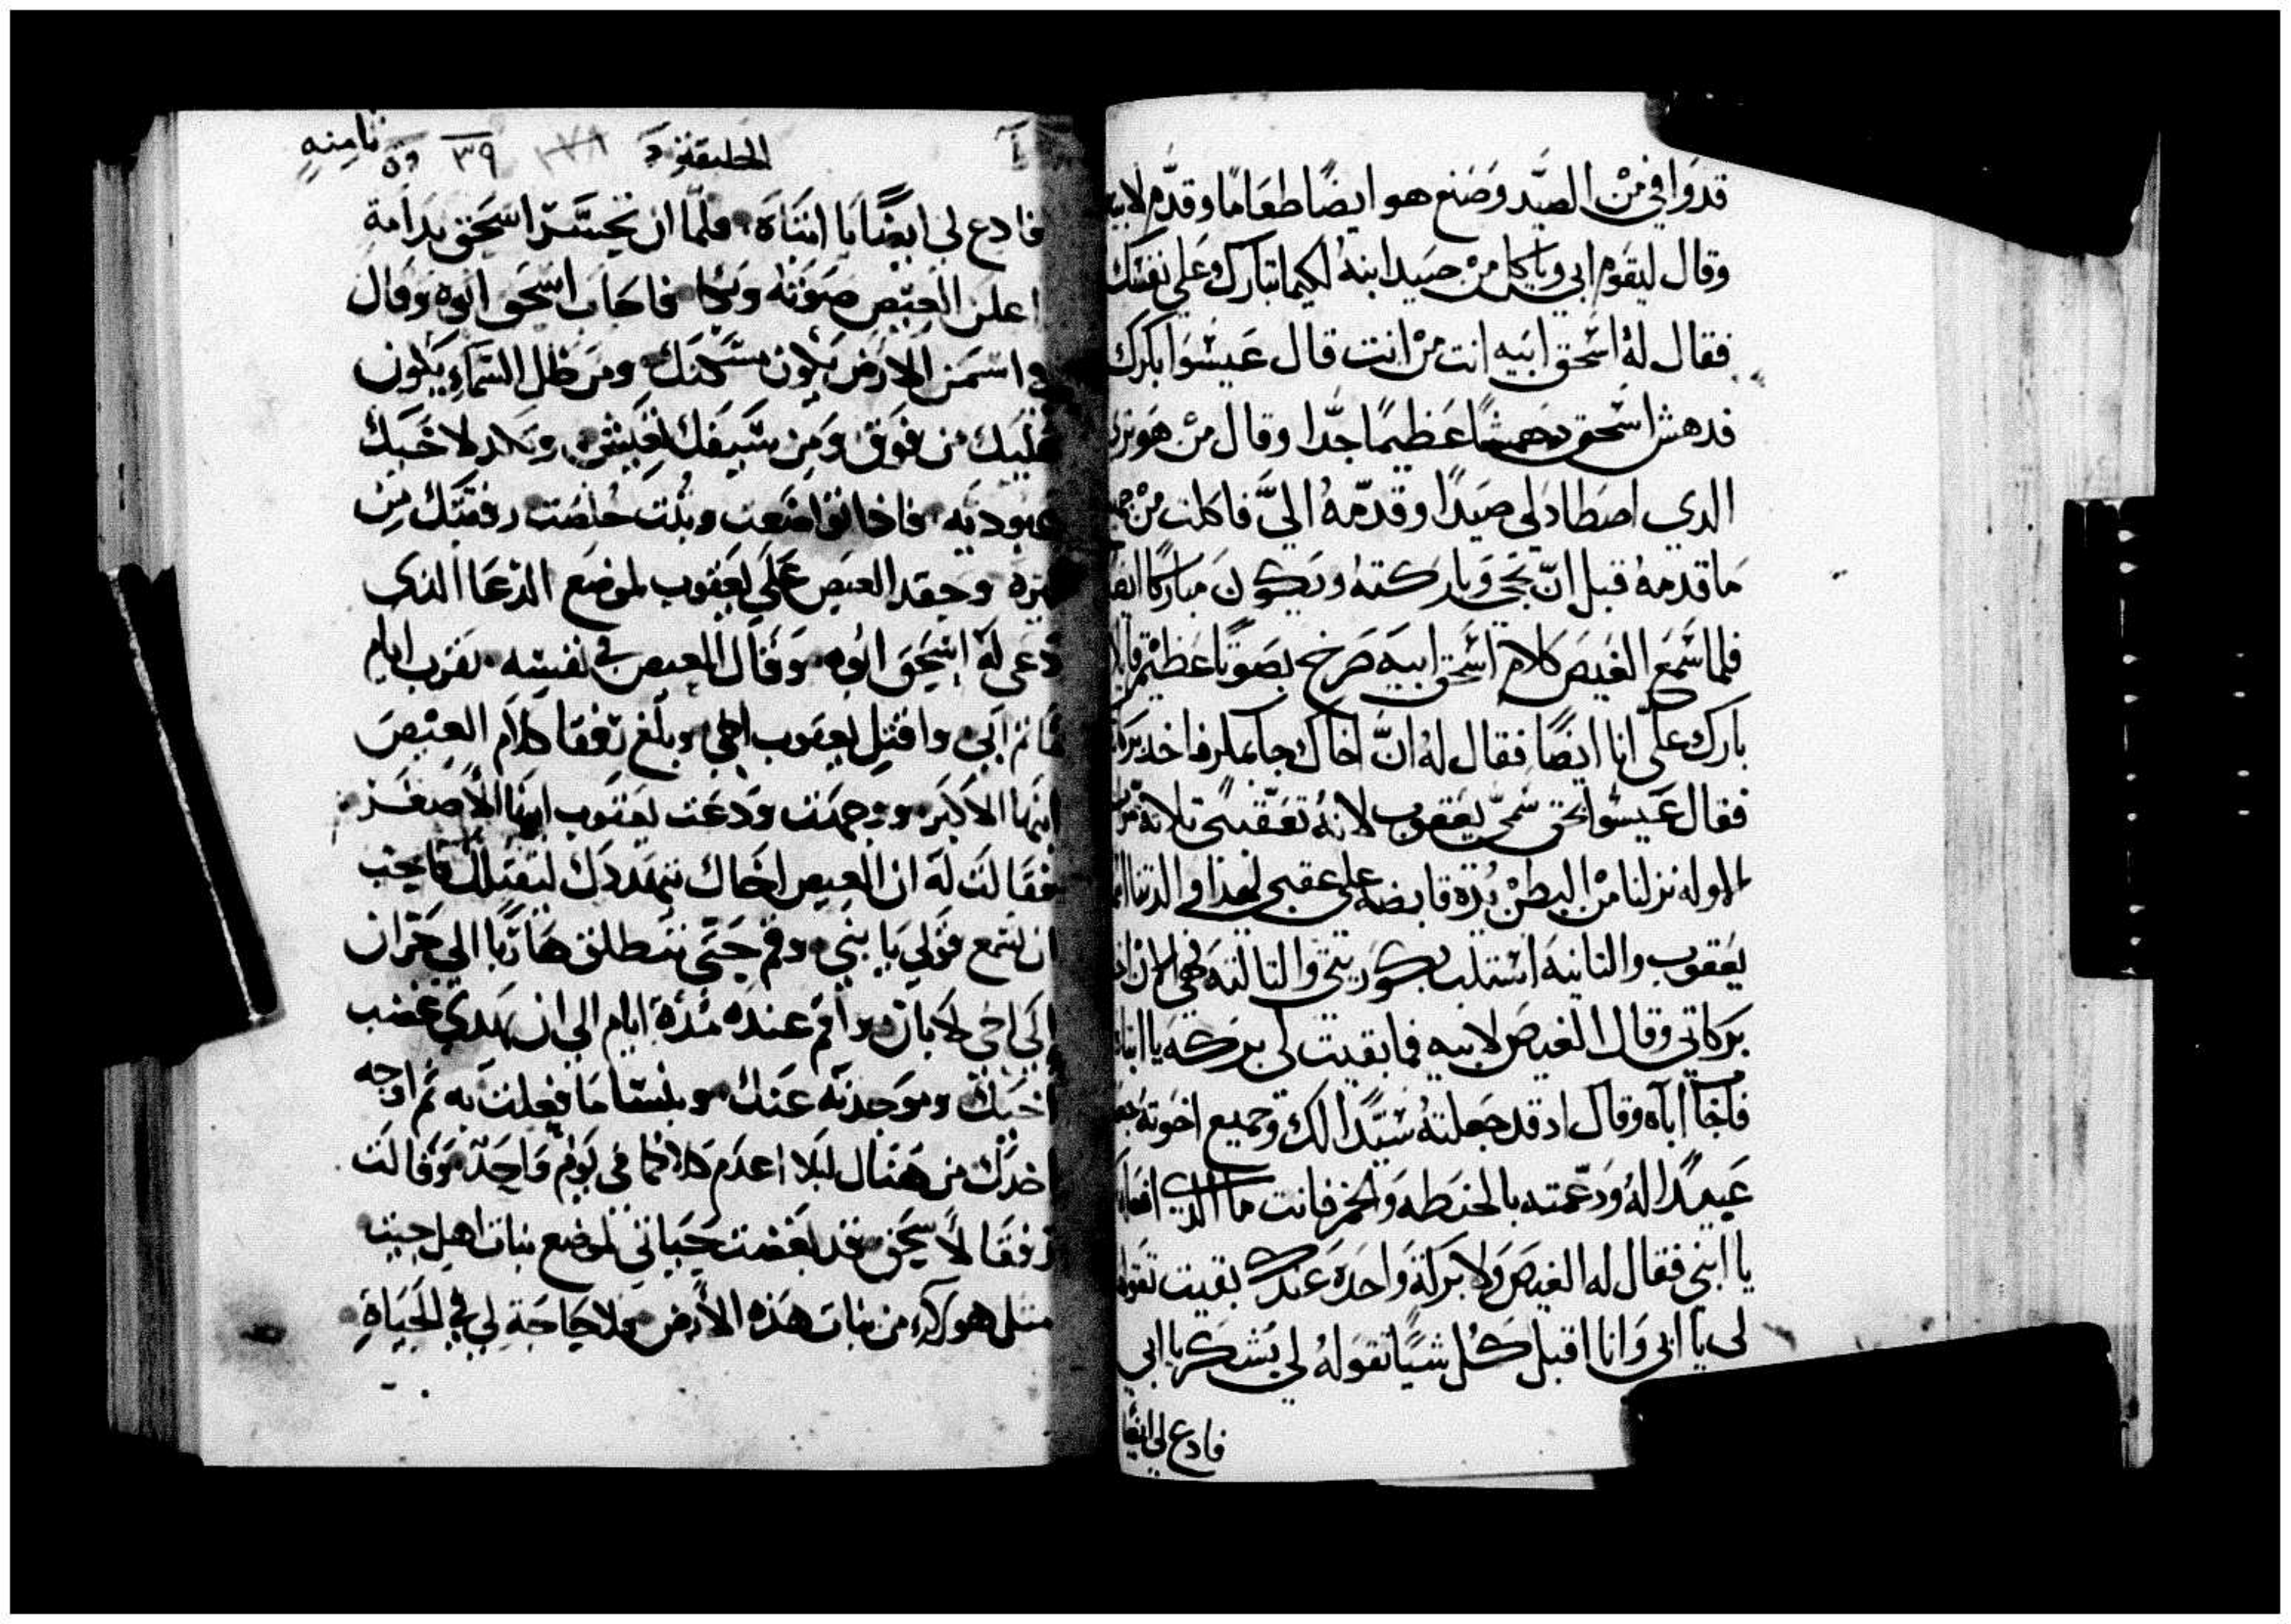 قد وافي مْن الصيَّد وَصَنع هو ايضًا طعَامًا وقدَّم لابيه
وقال ليقوم ابي وياكل مْن صيد ابنهُ لكيما تبارك علي نفسَك
فقال لهُ اسْحق ابيه انت مْن انت قال عَيسُوا بكرك
فدهش اسْحق دهشًا عَظيمًا جدًّا وقال مْن هو
الدي اصطاد لي صيدًا وقدّمهُ اليَّ فاكلت مْن
ما قدمهُ قبل انّ تجي وباركتهُ ويكون مباركًا
فلما سَمع الغيصَ كلام اسْحق ابيه صَرخ بصَوتًا عَظيْم
بارك علَّى انا ايضًا فقال له انَّ اخاك جا بمكر فاخد
فقال عَيسُوا بحق سُمّي يَعقوب لانهُ تعَقّبني تلاتة
الاوله نزلنا مْن البطْن يدَه قابضه علي عقبي لهدا في الدنيا
يَعقوب والتانيه اسْتلب بكوريتي والتالته فهي الان
بَركاتي وقال الغيصَ لابيه فما بقيت لي بركه يا ابتاه
فاجَاَ اباَه وقال اد قد جعلتهُ سَيّدًا لك وجميع اخوتهُ
عَبيدًا لهُ ودعّمته بالحنطه وَالخمر فانت ما الدي افعل
يا ابني فقال له الغيصَ ولا بَركة وَاحدَه عَندك بقيت تقوله
لي يا ابي وَانا اقبل كُل شيًا تقولهُ لي بَشكر يا ابي
فادع لي ايضًا
الخليقة
٣٩
ثامنه
فادع لي ايضًا يا ابتاه فلمّا ان تحسّر اسحق ندامة
اعلن العيص صوته وبكا فاجاب اسحق ابوه وقال
اسمن الارض يكون مسكنك ومن ظل السماء يكون
عليك من فوق ومن سيفك تعيش وتكد لاخيك
عبوديه فاذا تواضعت وبُنت خلصت رقبتك من
نيره وحقد العيص علي يعقوب لموضع الدعا الذي
دعي له اسحق ابوه وقال العيص في نفسه تقرب ايام
ماتم ابي واقتل يعقوب اخي وبلغ رفقا كلام العيص
ابنها الاكبر ووجهت ودعت يعقوب ابنها الأصغر
فقالت له ان العيص اخاك يتهددك ليقتلك فيجب
ان تسمع قولي يا بني وقم حتي تنطلق هاربًا الي حران
الي اخي لابان واقم عنده مُدة ايام الي ان يهدي غضب
اخيك وموجدته عنك وينسا ما فعلت به ثم اوجه
اخدك من هناك ليلا اعدم كلاكما في يوم واحد وقالت
رفقا لأسحق قد بغضت حياتي لموضع بنات اهل حيت
متل هولاء من بنات هذه الأرض فلا حاجة لي في الحياة